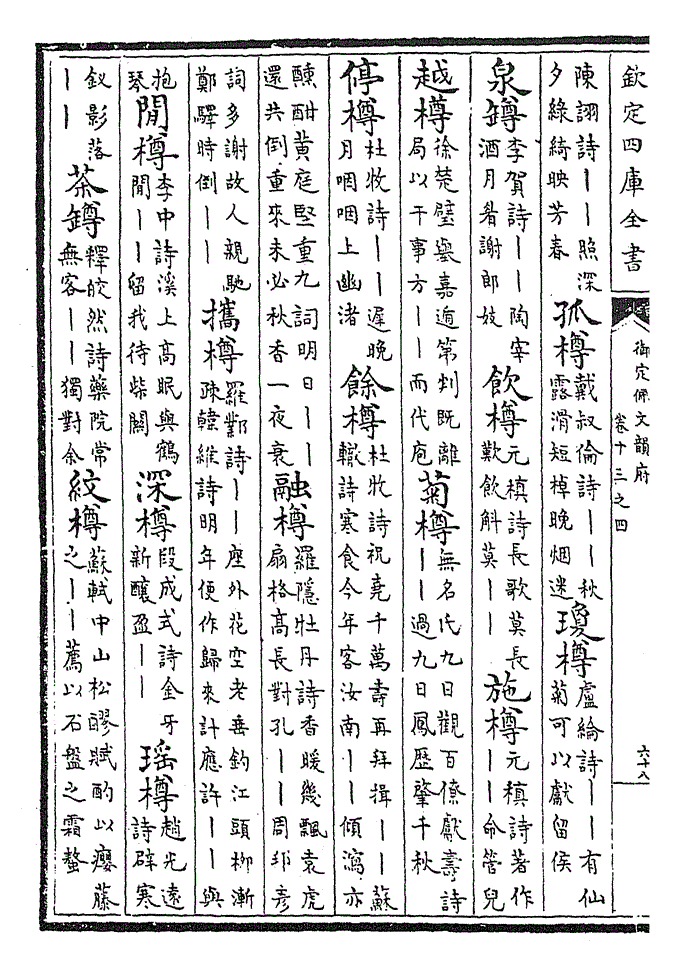 欽定四庫全書 御定佩文韻府 卷十三之四 六十八
陳詡詩||照深夕綠綺映芳春 孤樽 戴叔倫詩||秋露滑短棹晚烟迷 瓊樽 盧綸詩||有仙菊可以獻留侯
泉鐏 李賀詩||陶宰酒月眷謝郎妓 飲樽 元稹詩長歌莫長歎飲斛莫|| 施樽 元稹詩著作||命管兒
越樽 徐楚璧舉嘉遁第判既離局以干事方||而代庖 菊樽 無名氏九日觀百僚獻壽詩||過九日鳳歷肇千秋
停樽 杜牧詩||遲晚月咽咽上幽渚 餘樽 杜牧詩祝堯千萬壽再拜揖||蘇轍詩寒食今年客汝南||傾瀉亦
醺酣黃庭堅重九詞明日||還共倒重來未必秋香一夜衰 融樽 羅隱牡丹詩香暖幾飄袁虎扇格高長對孔||周邦彥
詞多謝故人親馳鄭驛時倒|| 攜樽 羅鄴詩||座外花空老垂釣江頭柳漸疎韓維詩明年便作歸來計應許||與
抱琴 閒樽 李中詩溪上高眠與鶴閒||留我待柴關 深樽 段成式詩金牙新釀盈|| 瑤樽 趙光遠詩辟寒
釵影落|| 茶鐏 釋皎然詩藥院常無客||獨對余 紋樽 蘇軾中山松醪賦酌以癭藤之||薦以石盤之霜螯